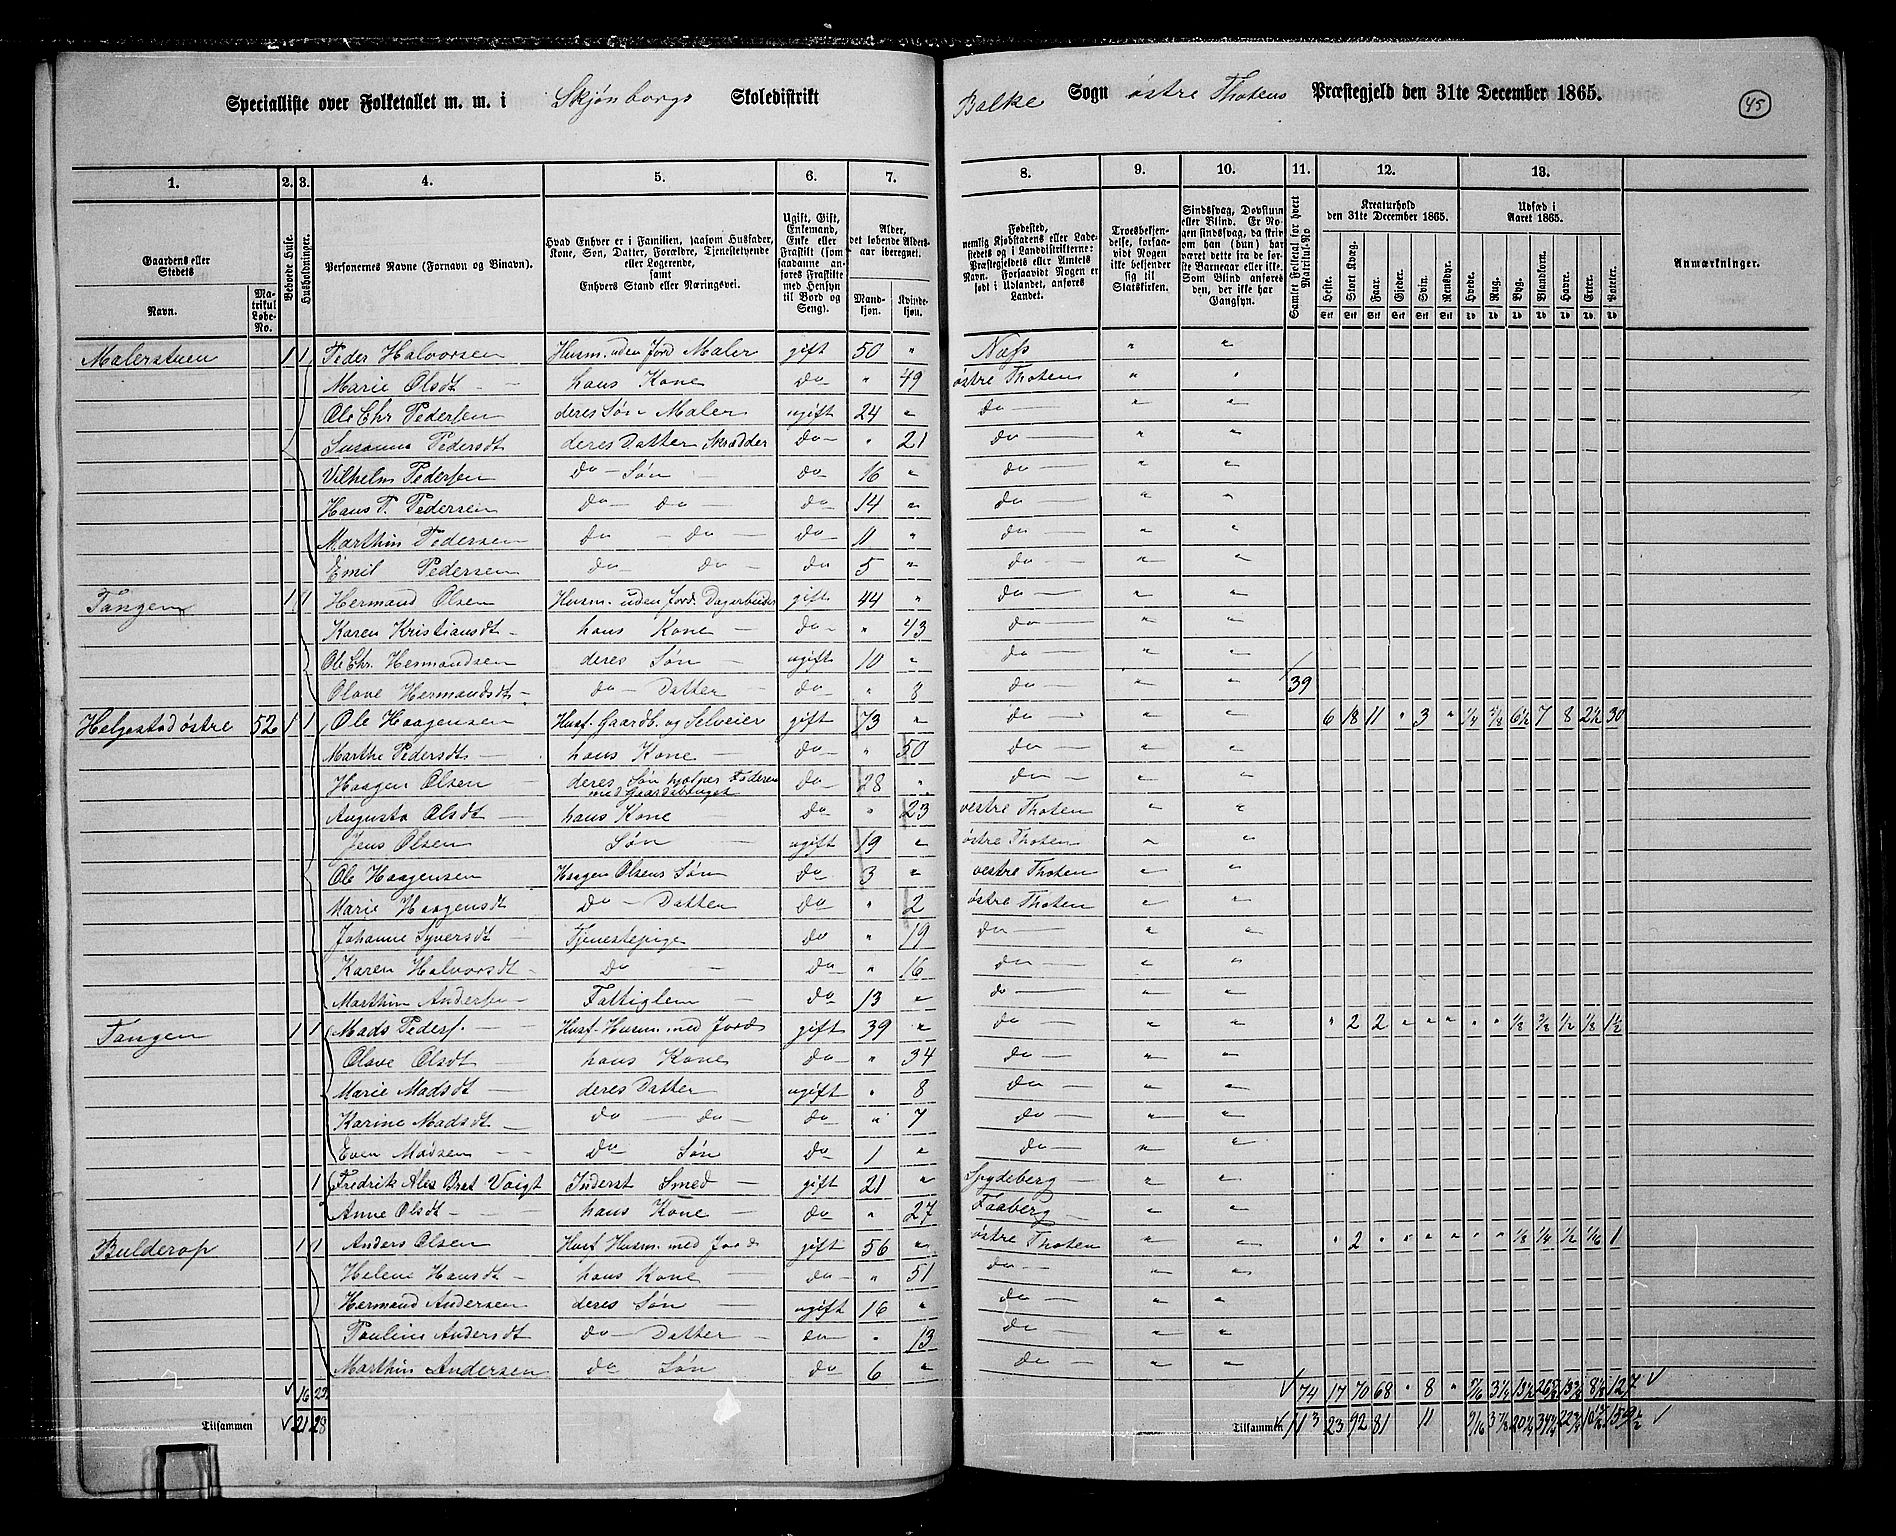 Specialliste over Folketallet m. m. i Skjønborgs Skoledistrikt Balke Sogn østre Thotens Præstegjeld den 31te December 1865. 45
1. 2. 3. 4. 5. 6. 7. 8. 9. 10. 11. 12. 13.
Gaardens eller Stedets
Navn.
Matrikul Løbe-No.
Beboede Huse.
Husholdninger.
Personernes Navne (Fornavn og Binavn).
Hvad Enhver er i Familien, saasom Husfader, Kone, Søn, Datter, Forældre, Tjenestetyende eller Logerende, samt Enhvers Stand eller Næringsvei.
Ugift, Gift, Enkemand, Enke eller Fraskilt (som saadanne anføres Fraskilte med Hensyn til Bord og Seng).
Alder, det løbende Aldersaar iberegnet.
Mandkjøn. Kvindekjøn.
Fødested, nemlig Kjøbstadens eller Ladestedets og i Landdistrikterne: Præstegjeldets eller Amtets Navn. Forsaavidt Nogen er født i Udlandet, anføres Landet.
Troesbekjendelse, forsaavidt Nogen ikke bekjender sig til Statskirken.
Sindssvag, Døvstum eller Blind. Er Nogen sindssvag, da skrives om han (hun) har været dette fra de første Barneaar eller ikke. Som Blind anføres den, der ikke har Gangsyn.
Samlet Folketal for hvert Matrikul-No
Kreaturhold den 31te December 1865.
Heste. Stort Kvæg. Faar. Gjeder. Svin. Rensdyr.
Udsæd i Aaret 1865.
Hvede. Rug. Byg. Blandkorn. Havre. Erter. Poteter.
Anmærkninger.
Malerstuen 1 1 Peder Halvorsen Husm. uden Jord Maler gift 50 " Næss " "
Marie Olsdt - hans Kone do " 49 østre Thoten " "
Ole Chr Pedersen deres Søn Maler ugift 24 " do " "
Susanna Pedersdt deres Datter Skrædder do " 21 do " "
Vilhelm Pedersen do - Søn do 16 " do " "
Hans P. Pedersen do - do do 14 " do " "
Marthin Pedersen do - do do 11 " do " "
Emil Pedersen do do do 5 " do " "
Tangen 1 1 Hermand Olsen Husm. uden Jord. Dagarbeider gift 44 " do " "
Karen Kristiansdt hans Kone do " 43 do " "
Ole Chr. Hermandsen deres Søn ugift 10 " do " "
Olave Hermandsdt do - Datter do " 8 do " " 39
Helgestad østre 52 1 1 Ole Haagensen Husf. Gaardb. og Selveier gift 73 " do " " 6 18 11 " 3 " 1/4 5/8 6½ 7 8 2½ 30
Marthe Pedersdt hans Kone do " 50 do " "
Haagen Olsen deres Søn hjælper Faderen med Gaardsbruget do 28 " do " "
Augusta Olsdt hans Kone do " 23 vestre Thoten " "
Jens Olsen Søn ugift 19 " østre Thoten " "
Ole Haagensen Haagen Olsens Søn do 3 " vestre Thoten " "
Marie Haagensdt do - Datter do " 2 østre Thoten " "
Johanne Syversdt Tjenestepige do " 19 do " "
Karen Halvorsdt do do " 16 do " "
Marthin Andersen Fattiglem do 13 " do " "
Tangen 1 1 Mads Peders. Husf. Husm. med Jord gift 39 " do " " " 2 2 " " " " " ½ 3/2 ½ 1/8 1½
Olave Olsdt hans Kone do " 34 do " "
Marie Madsdt deres Datter ugift " 8 do " "
Karine Madsdt do do do " 7 do " "
Even Madsen do Søn do 1 " do " "
1 Fredrik Alex Brat Voigt Inderst Smed gift 21 " Spydeberg " "
Anne Olsdt hans Kone do " 27 Faaberg " "
Bulderop 1 1 Anders Olsen Husf Husm. med Jord gift 56 " østre Thoten " " " 2 " " " " " " 1/3 1/4 ½ 1/16 1
Helene Hansdt hans Kone do " 51 do " "
Hermand Andersen deres Søn ugift 16 " do " "
Pauline Andersdt do - Datter do " 13 do " "
Marthin Andersen do Søn do 6 " do " "
16 22 74 17 70 68 " 8 " 127
Tilsammen 21 28 Tilsammen 113 23 92 81 11